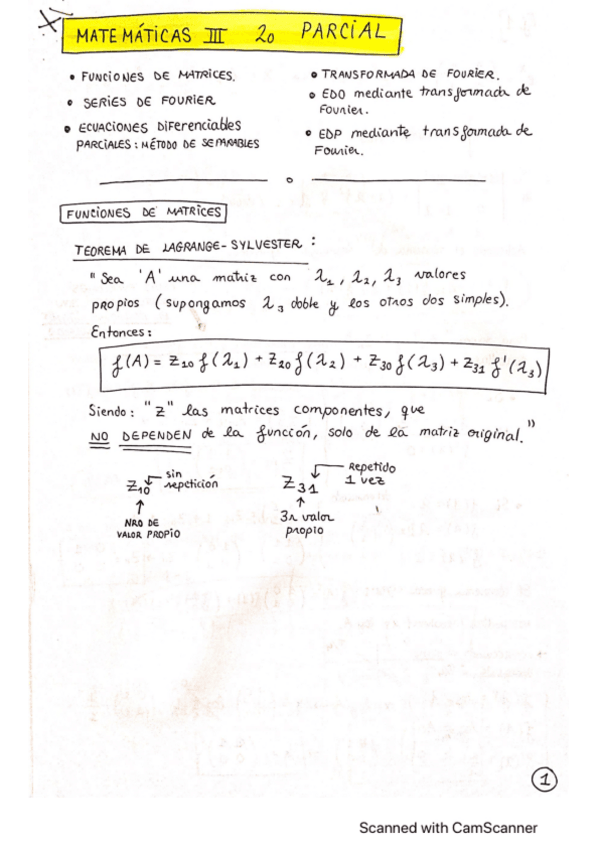 MATEMÁTICAS III 2o PARCIAL
• FUNCIONES DE MATRICES.
• SERIES DE FOURIER
• ECUACIONES DIFERENCIABLES
PARCIALES: MÉTODO DE SEPARABLES
• TRANSFORMADA DE FOURIER.
• EDO mediante transformada de
Fourier.
• EDP mediante transformada de
Fourier.
FUNCIONES DE MATRICES
TEOREMA DE LAGRANGE-SYLVESTER :
" Sea 'A' una matriz con λ1, λ2, λ3 valores
propios (supongamos λ3 doble y los otros dos simples).
Entonces:
f(A) = Z10 f(λ1) + Z20 f(λ2) + Z30 f(λ3) + Z31 f'(λ3)
Siendo: "Z" las matrices componentes, que
NO DEPENDEN de la función, solo de la matriz original."
Z10 ← sin
repetición
↑
NRO DE
VALOR PROPIO
Z31 ← Repetido
1 vez
↑
3r valor
propio
1
Scanned with CamScanner